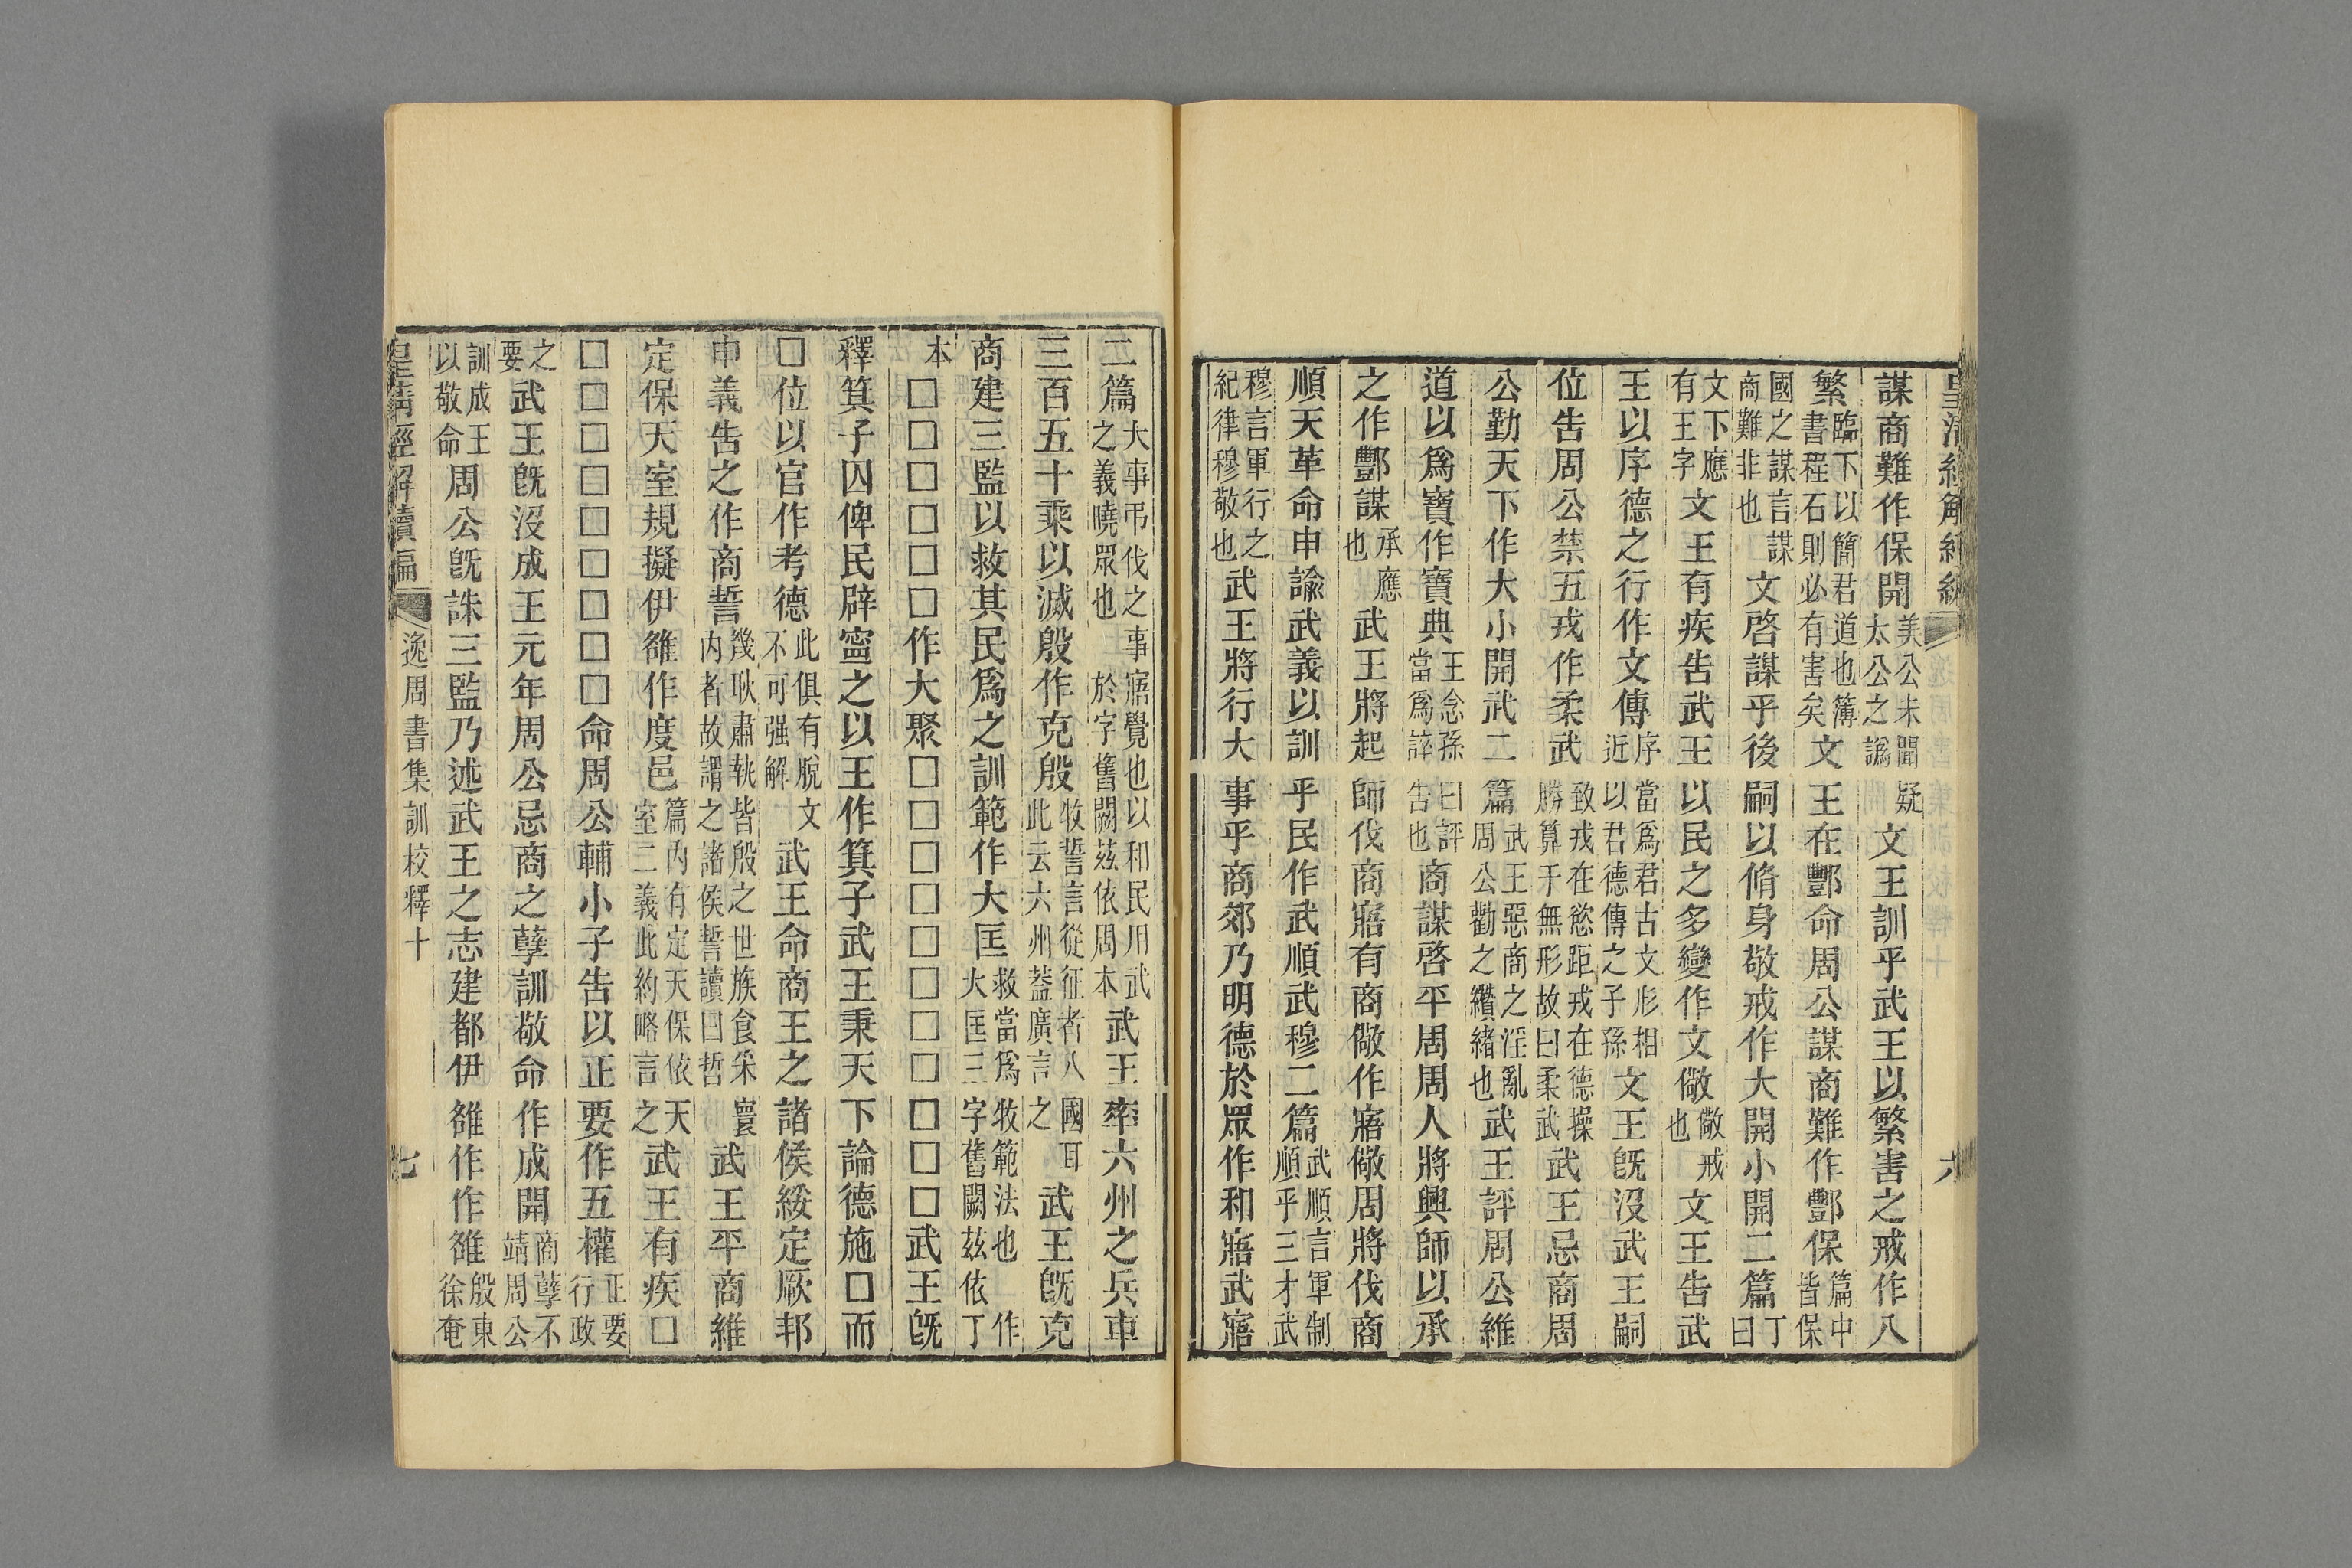 皇清經解續編　六
謀商難作保開美公未聞疑太公之譌文王訓乎武王以繁害之戒作八
繁臨下以簡君道也簿書程石則必有害矣文王在酆命周公謀商難作酆保篇中皆保
國之謀言謀商難非也文啓謀乎後嗣以脩身敬戒作大開小開二篇丁曰
文下應有王字文王有疾告武王以民之多變作文儆儆戒也文王告武
王以序德之行作文傳序當爲君古文形相近以君德傳之子孫文王旣沒武王嗣
位告周公禁五戎作柔武致戎在慾距戎在德操勝算于無形故曰柔武武王忌商周
公勤天下作大小開武二篇武王惡商之淫亂周公勸之纘緒也武王評周公維
道以爲寶作寶典王念孫曰評當爲誶告也商謀啓平周周人將興師以承
之作酆謀承應也武王將起師伐商寤有商儆作寤儆周將伐商
順天革命申諭武義以訓乎民作武順武穆二篇武順言軍制順乎三才武
穆言軍行之紀律穆敬也武王將行大事乎商郊乃明德於眾作和寤武寤
二篇大事弔伐之事寤覺也以和民用武之義曉眾也於字舊闕茲依周本武王率六州之兵車
三百五十乘以滅殷作克殷牧誓言從征者八國耳此云六州蓋廣言之武王旣克
商建三監以救其民爲之訓範作大匡救當爲牧範法也作大匡三字舊闕茲依丁
本□□□□□□作大聚□□□□□□□□□□□武王旣
釋箕子囚俾民辟寍之以王作箕子武王秉天下論德施□而
□位以官作考德此俱有脫文不可强解武王命商王之諸侯綏定厥邦
申義告之作商誓幾耿肅執皆殷之世族食采寰内者故謂之諸侯誓讀曰哲武王平商維
定保天室規擬伊雒作度邑篇内有定天保依天室二義此約略言之武王有疾□
□□□□□□□□□命周公輔小子告以正要作五權正要行政
之要武王旣沒成王元年周公忌商之孽訓敬命作成開商孽不靖周公
訓成王以敬命周公旣誅三監乃述武王之志建都伊雒作作雒殷東徐奄
皇清經解續編　逸周書集訓校釋十　七